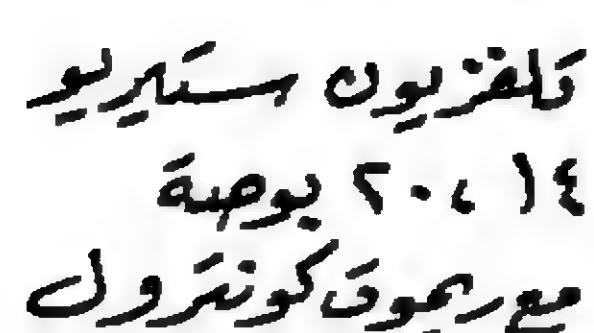 تلفزيون ستيريو
١٤ ، ٢٠ بوصة
مع ريموت كونترول